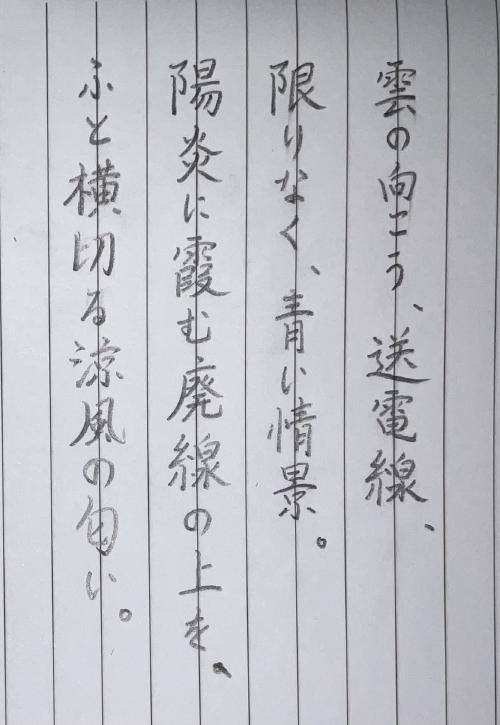 雲の向こう、送電線、
限りなく、青い情景。
陽炎に霞む廃線の上を、
ふと横切る涼風の匂い。